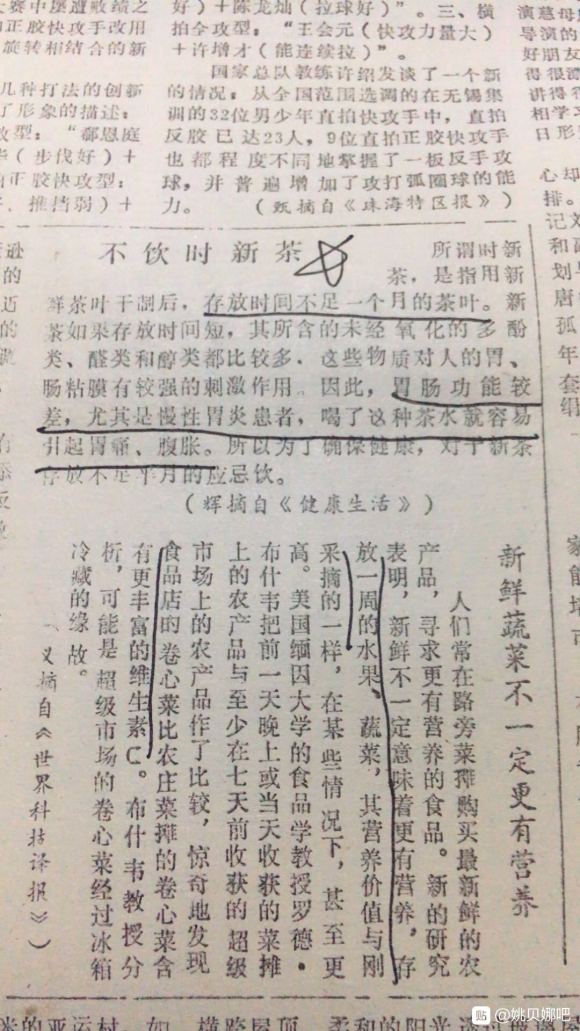 好）＋陈龙灿（拉球好）”。三、横
拍全攻型：“王会元（快攻力量大）
＋许增才（能连续拉）”。
国家总队教练许绍发谈了一个新
的情况：从全国范围选调的在无锡集
训的32位男少年直拍快攻手中，直拍
反胶已达23人，9位直拍正胶快攻手
也都程度不同地掌握了一板反手攻
球，并普遍增加了攻打弧圈球的能
力。（甄摘自《珠海特区报》）
旋转相结合的新
几种打法的创新
了形象的描述：
攻型：“郗恩庭
（步伐好）＋
正胶快攻型：
、推挡弱）＋
演慈母
导演的
好朋友
得很潇
讲得很
相学习
日形
不饮时新茶
所谓时新
茶，是指用新
鲜茶叶干制后，存放时间不足一个月的茶叶。新
茶如果存放时间短，其所含的未经氧化的多酚
类、醛类和醇类都比较多，这些物质对人的胃、
肠粘膜有较强的刺激作用。因此，胃肠功能较
差，尤其是慢性胃炎患者，喝了这种茶水就容易
引起胃痛、腹胀。所以为了确保健康，对于新茶
存放不足半月的应忌饮。
（辉摘自《健康生活》）
新鲜蔬菜不一定更有营养
人们常在路旁菜摊购买最新鲜的农
产品，寻求更有营养的食品。新的研究
表明，新鲜不一定意味着更有营养，存
放一周的水果、蔬菜，其营养价值与刚
采摘的一样，在某些情况下，甚至更
高。美国缅因大学的食品学教授罗德·
布什韦把前一天晚上或当天收获的菜摊
上的农产品与至少在七天前收获的超级
市场上的农产品作了比较，惊奇地发现
食品店的卷心菜比农庄菜摊的卷心菜含
有更丰富的维生素C。布什韦教授分
析，可能是超级市场的卷心菜经过冰箱
冷藏的缘故。
（义摘自《世界科技译报》）
贴 @姚贝娜吧